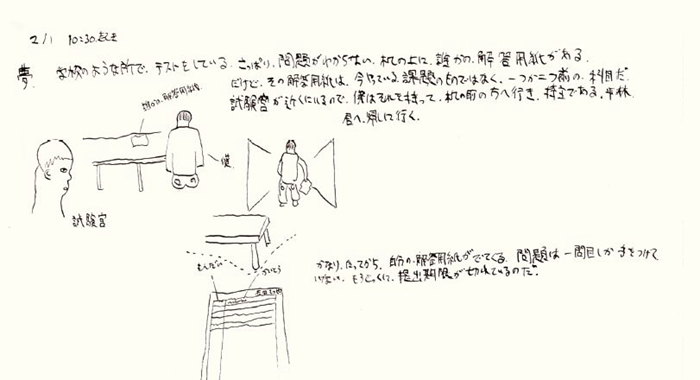 2/1 10:30.起き
夢. 学校のような所で、テストをしている。さっぱり、問題がわからない。机の上に、誰かの、解答用紙がある。
だけど、その解答用紙は、今やっている課題のものではなく、一つか二つ前の、科目だ。
試験官が近くにいるので、僕はそれを持って、机の前の方へ行き、持主である、平林
君へ、帰しに行く。
誰かの、解答用紙
僕
試験官
かなり、たってから、自分の、解答用紙がでてくる。問題は一問目しか手をつけて
いない。もうとっくに、提出期限が切れているのだ。
もんだい